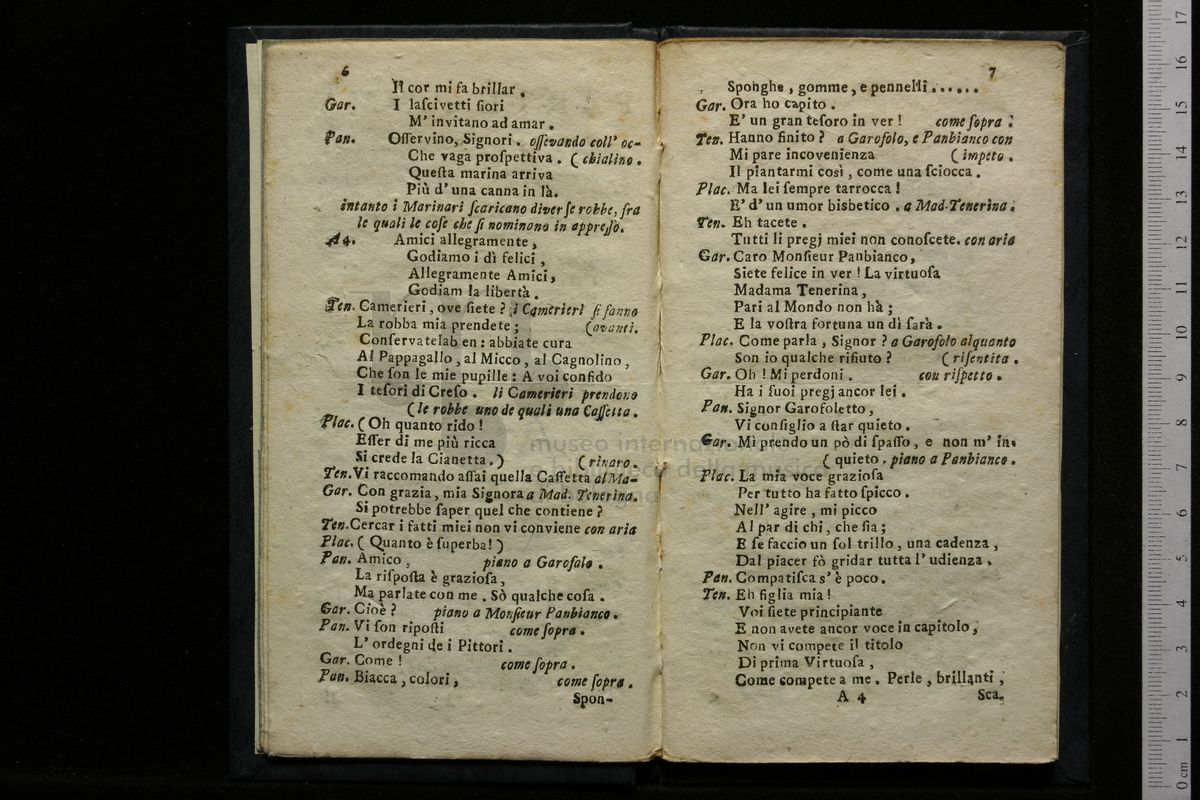 6
Il cor mi fa brillar.
Gar. I lascivetti fiori
M' invitano ad amar.
Pan. Osservino, Signori. ossevando coll' oc-
Che vaga prospettiva. (chialino.
Questa marina arriva
Più d' una canna in là.
intanto i Marinari scaricano diverse robbe, fra
le quali le cose che si nominano in appresso.
A 4. Amici allegramente,
Godiamo i dì felici,
Allegramente Amici,
Godiam la libertà.
Ten. Camerieri, ove siete? i Camerieri si fanno
La robba mia prendete; (avanti.
Conservatelab en: abbiate cura
Al Pappagallo, al Micco, al Cagnolino,
Che son le mie pupille: A voi confido
I tesori di Creso. li Camerieri prendono
(le robbe uno de quali una Cassetta.
Plac. (Oh quanto rido!
Esser di me più ricca
Si crede la Cianetta.) (rinaro.
Ten. Vi raccomando assai quella Cassetta al Ma-
Gar. Con grazia, mia Signora a Mad. Tenerina.
Si potrebbe saper quel che contiene?
Ten. Cercar i fatti miei non vi conviene con aria
Plac. (Quanto è superba!)
Pan. Amico, piano a Garofolo.
La risposta è graziosa,
Ma parlate con me. Sò qualche cosa.
Gar. Cioè? piano a Monsieur Panbianco.
Pan. Vi son riposti come sopra.
L' ordegni de i Pittori.
Gar. Come! come sopra.
Pan. Biacca, colori, come sopra.
Spon-
7
Sponghe, gomme, e pennelli......
Gar. Ora ho capito.
E' un gran tesoro in ver! come sopra.
Ten. Hanno finito? a Garofolo, e Panbianco con
Mi pare incovenienza (impeto.
Il piantarmi così, come una sciocca.
Plac. Ma lei sempre tarrocca!
E' d' un umor bisbetico. a Mad. Tenerina.
Ten. Eh tacete.
Tutti li pregj miei non conoscete. con aria
Gar. Caro Monsieur Panbianco,
Siete felice in ver! La virtuosa
Madama Tenerina,
Pari al Mondo non hà;
E la vostra fortuna un dì sarà.
Plac. Come parla, Signor? a Garofolo alquanto
Son io qualche rifiuto? (risentita.
Gar. Oh! Mi perdoni. con rispetto.
Ha i suoi pregj ancor lei.
Pan. Signor Garofoletto,
Vi consiglio a star quieto.
Gar. Mi prendo un pò di spasso, e non m' in-
(quieto. piano a Panbianco.
Plac. La mia voce graziosa
Per tutto ha fatto spicco.
Nell' agire, mi picco
Al par di chi, che sia;
E se faccio un sol trillo, una cadenza,
Dal piacer fò gridar tutta l' udienza.
Pan. Compatisca s' è poco.
Ten. Eh figlia mia!
Voi siete principiante
E non avete ancor voce in capitolo,
Non vi compete il titolo
Di prima Virtuosa,
Come compete a me. Perle, brillanti,
A 4 Sca-
museo internazionale
biblioteca della musica